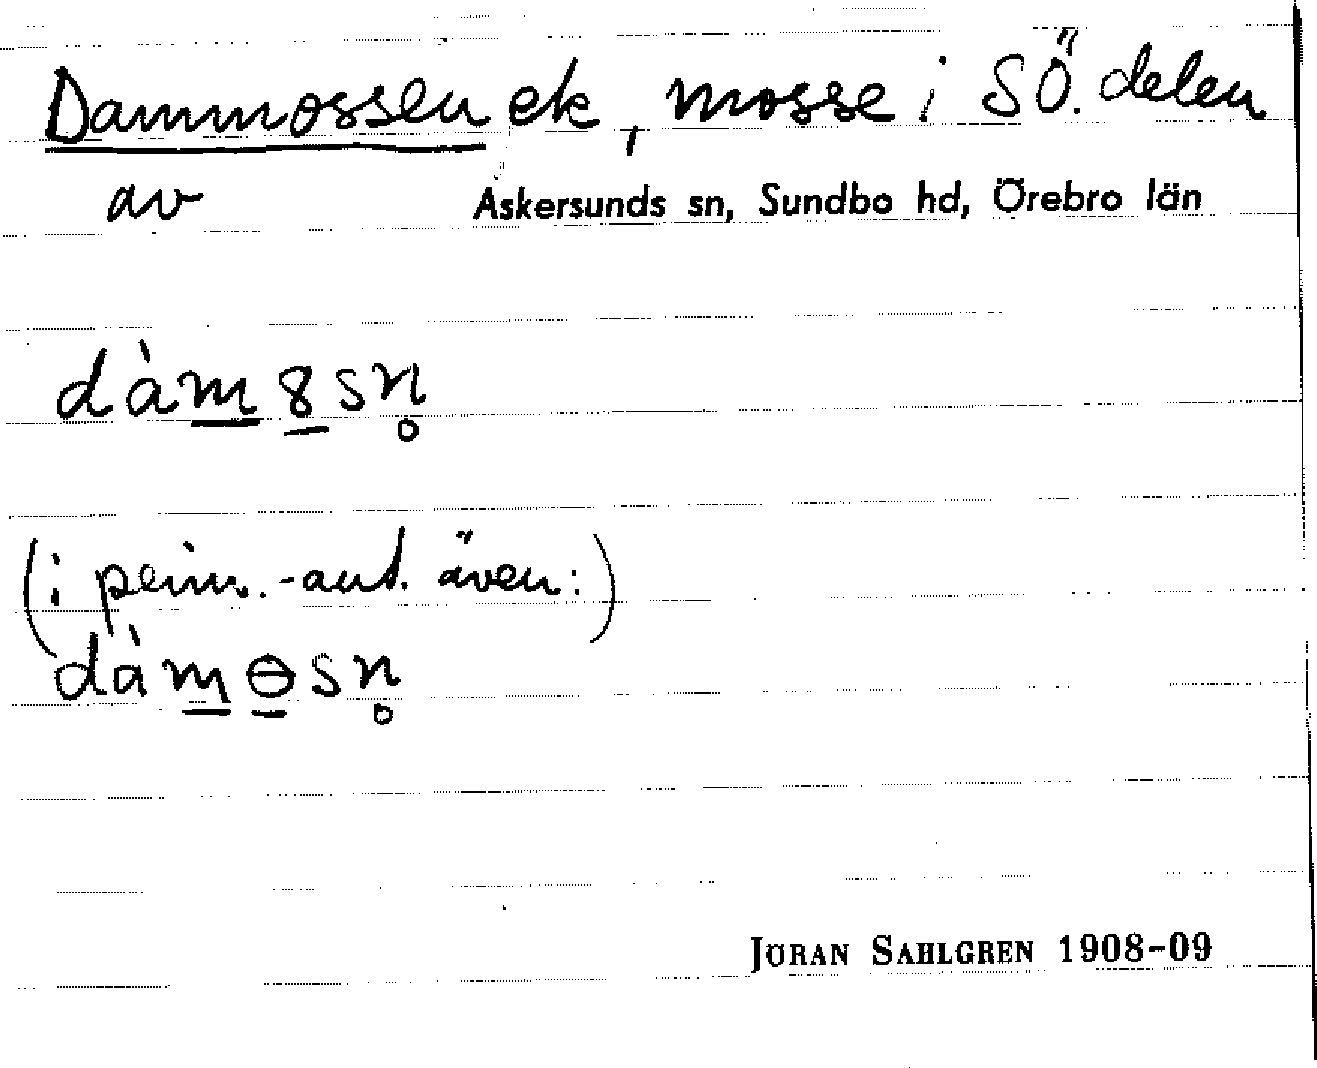 Dammossen ek, mosse i SÖ. delen
av Askersunds sn, Sundbo hd, Örebro län
dàm̲8̲sn̥
(i prim.-ant. även:)
dàm̲ɵ̲sn̥
JÖRAN SAHLGREN 1908-09